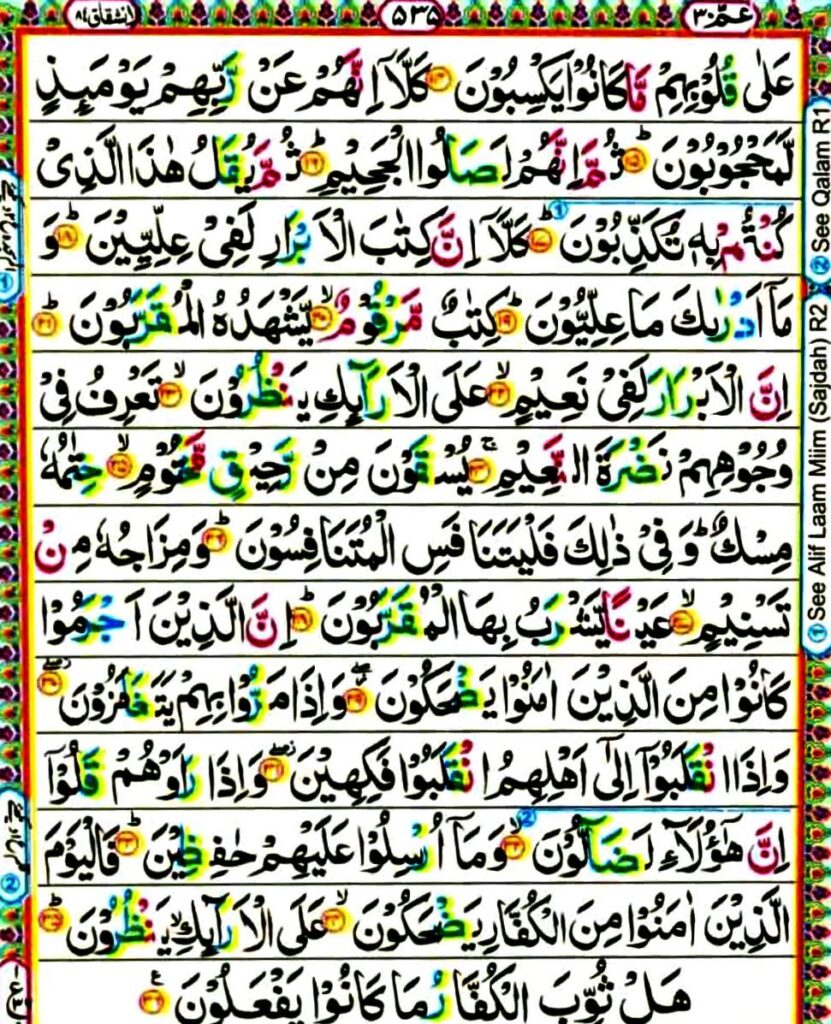 عَمَّ ٣٠
٥٣٥
انشقاق ٨٤
عَلٰى قُلُوْبِهِمْ مَّا كَانُوْا يَكْسِبُوْنَ ۝١٤ كَلَّاۤ اِنَّهُمْ عَنْ رَّبِّهِمْ يَوْمَىِٕذٍ
لَّمَحْجُوْبُوْنَ ۝١٥ؕ ثُمَّ اِنَّهُمْ لَصَالُوا الْجَحِيْمِ ۝١٦ؕ ثُمَّ يُقَالُ هٰذَا الَّذِىْ
كُنْتُمْ بِهٖ تُكَذِّبُوْنَ ۝١٧ؕ كَلَّاۤ اِنَّ كِتٰبَ الْاَبْرَارِ لَفِىْ عِلِّيِّيْنَ ۝١٨ؕ وَ
مَاۤ اَدْرٰىكَ مَا عِلِّيُّوْنَ ۝١٩ؕ كِتٰبٌ مَّرْقُوْمٌ ۝٢٠ۙ يَّشْهَدُهُ الْمُقَرَّبُوْنَ ۝٢١ؕ
اِنَّ الْاَبْرَارَ لَفِىْ نَعِيْمٍ ۝٢٢ۙ عَلَى الْاَرَآىِٕكِ يَنْظُرُوْنَ ۝٢٣ۙ تَعْرِفُ فِىْ
وُجُوْهِهِمْ نَضْرَةَ النَّعِيْمِ ۝٢٤ۚ يُسْقَوْنَ مِنْ رَّحِيْقٍ مَّخْتُوْمٍ ۝٢٥ۙ خِتٰمُهٗ
مِسْكٌ ؕ وَفِىْ ذٰلِكَ فَلْيَتَنَافَسِ الْمُتَنَافِسُوْنَ ۝٢٦ؕ وَمِزَاجُهٗ مِنْ
تَسْنِيْمٍ ۝٢٧ۙ عَيْنًا يَّشْرَبُ بِهَا الْمُقَرَّبُوْنَ ۝٢٨ؕ اِنَّ الَّذِيْنَ اَجْرَمُوْا
كَانُوْا مِنَ الَّذِيْنَ اٰمَنُوْا يَضْحَكُوْنَ ۝٢٩ۖ وَاِذَا مَرُّوْا بِهِمْ يَتَغَامَزُوْنَ ۝٣٠ۖ
وَاِذَا انْقَلَبُوْۤا اِلٰٓى اَهْلِهِمُ انْقَلَبُوْا فَكِهِيْنَ ۝٣١ۖ وَاِذَا رَاَوْهُمْ قَالُوْۤا
اِنَّ هٰۤؤُلَآءِ لَضَآلُّوْنَ ۝٣٢ۙ وَمَاۤ اُرْسِلُوْا عَلَيْهِمْ حٰفِظِيْنَ ۝٣٣ؕ فَالْيَوْمَ
الَّذِيْنَ اٰمَنُوْا مِنَ الْكُفَّارِ يَضْحَكُوْنَ ۝٣٤ۙ عَلَى الْاَرَآىِٕكِ ۙ يَنْظُرُوْنَ ۝٣٥ؕ
هَلْ ثُوِّبَ الْكُفَّارُ مَا كَانُوْا يَفْعَلُوْنَ ۝٣٦ۧ
① See Alif Laam Miim (Sajdah) R2 ② See Qalam R1